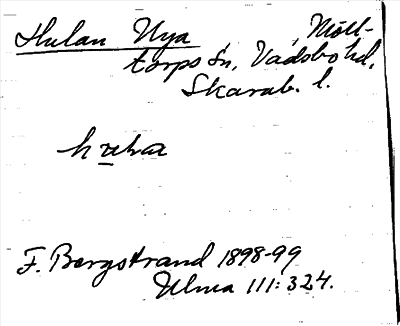 Hulan Nya, Mölt-
torps sn, Vadsbo hd,
Skarab. l.
F. Bergstrand 1898-99
Ulma 111:324.